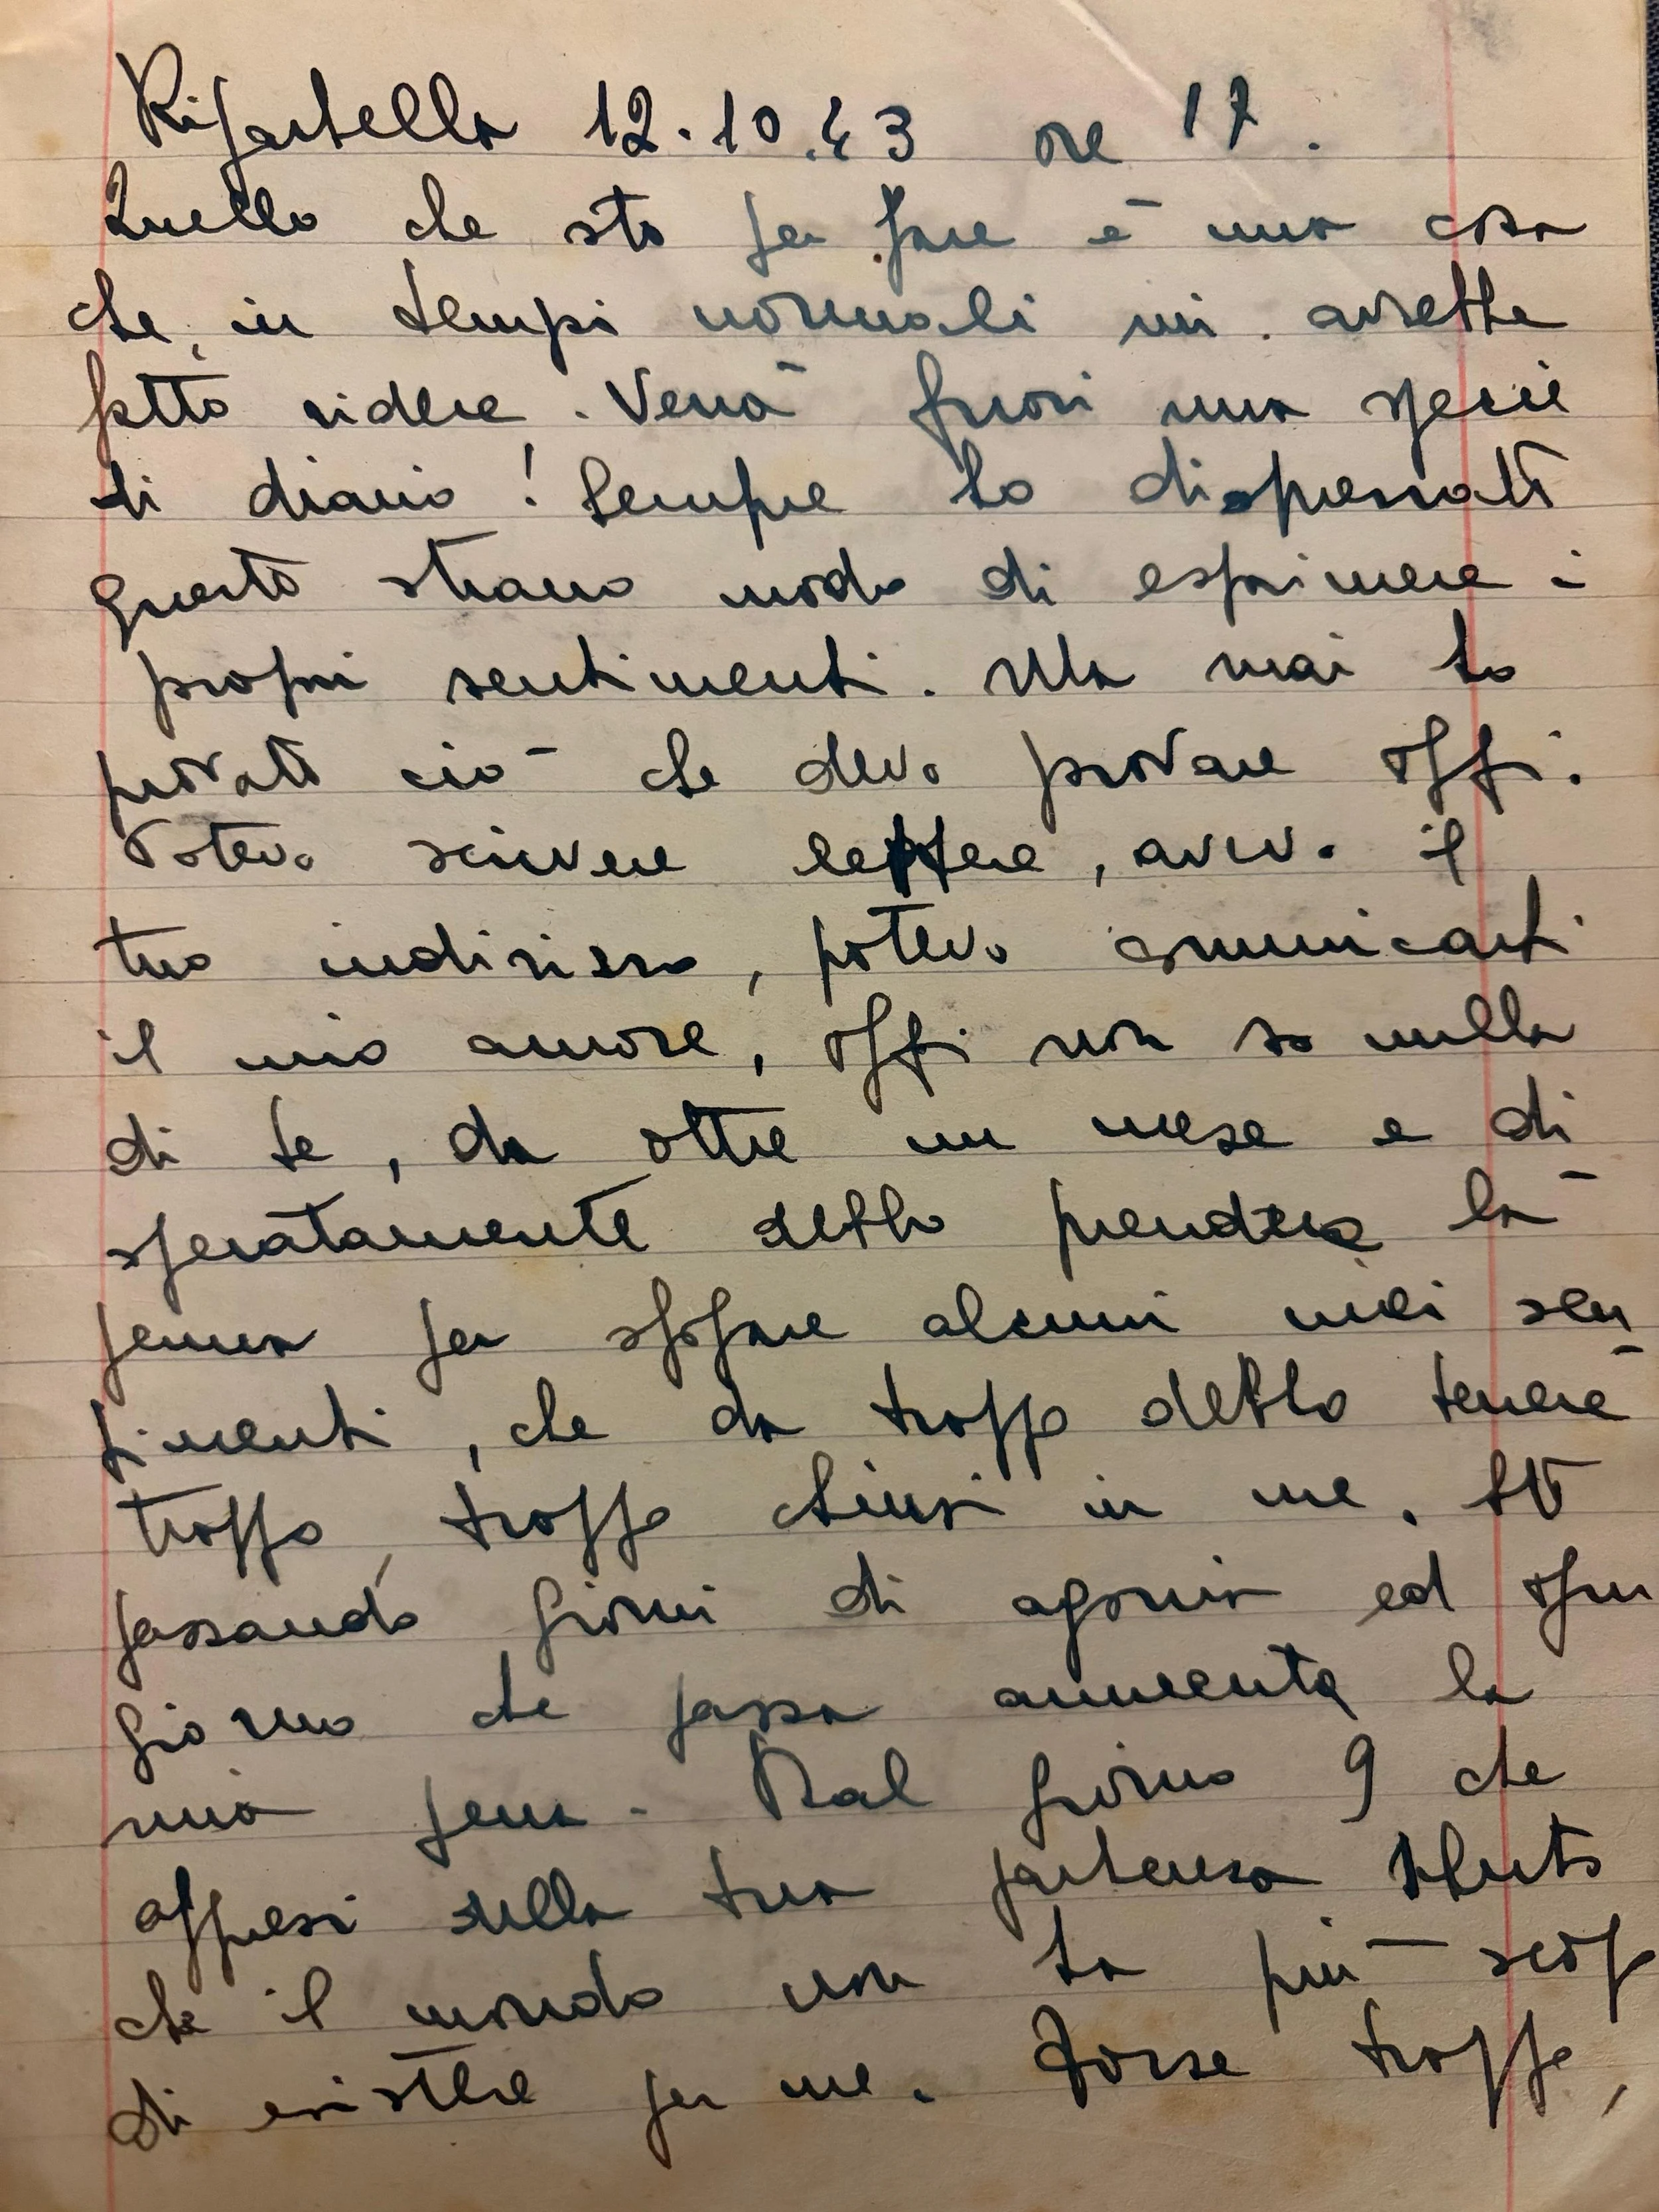 Ripartella 12.10.43 ore 17.
Quello che sto per fare è una cosa
che, in tempi normali mi avrebbe
fatto ridere. Verrà fuori una specie
di diario! Sempre ho disprezzato
questo strano modo di esprimere i
propri sentimenti. Ma mai ho
provato ciò che devo provare oggi.
Potevo scrivere lettere, avevo il
tuo indirizzo, potevo comunicarti
il mio amore, oggi non so nulla
di te, da oltre un mese e di
speratamente debbo prendere la
penna per sfogare alcuni miei sen
timenti, che da troppo debbo tenere
troppo, troppo chiusi in me. Sto
passando giorni di agonia ed ogni
giorno che passa aumenta la
mia pena. Dal giorno 9 che
appresi della tua partenza sento
che il mondo non ha più scopo
di esistere per me. Forse troppo,